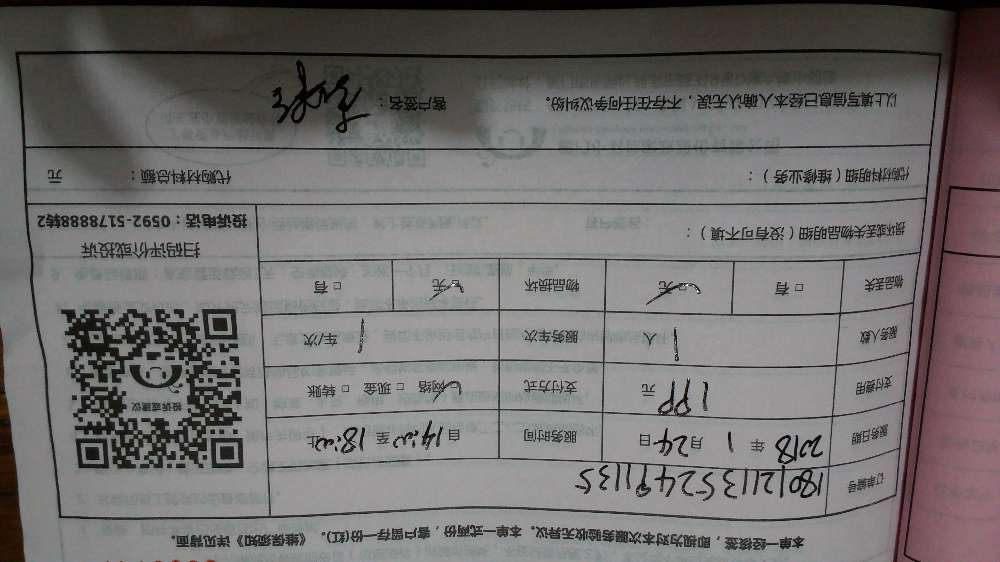 本单一经接签，即视为对本次服务验收无异议。本单一式两份，客户留存一份(红)。《维保须知》详见背面。
订单编号 1801211352491135
服务日期 2018 年 1 月 24 日 服务时间 自 14:00 至 18:00 止
支付费用 199 元 支付方式 ☑ 网络 □ 现金 □ 转账
服务人数 1 人 服务车次 1 车/次
物品丢失 □ 有 ☑ 无 物品损坏 ☑ 无 □ 有
损坏或丢失物品明细（没有可不填）：
投诉或建议
扫码评价或投诉
投诉电话：0592-5178888转2
代购材料明细（维修业务）： 代购材料总额： 元
以上填写信息已经本人确认无误，不存在任何争议纠纷。 客户签名：